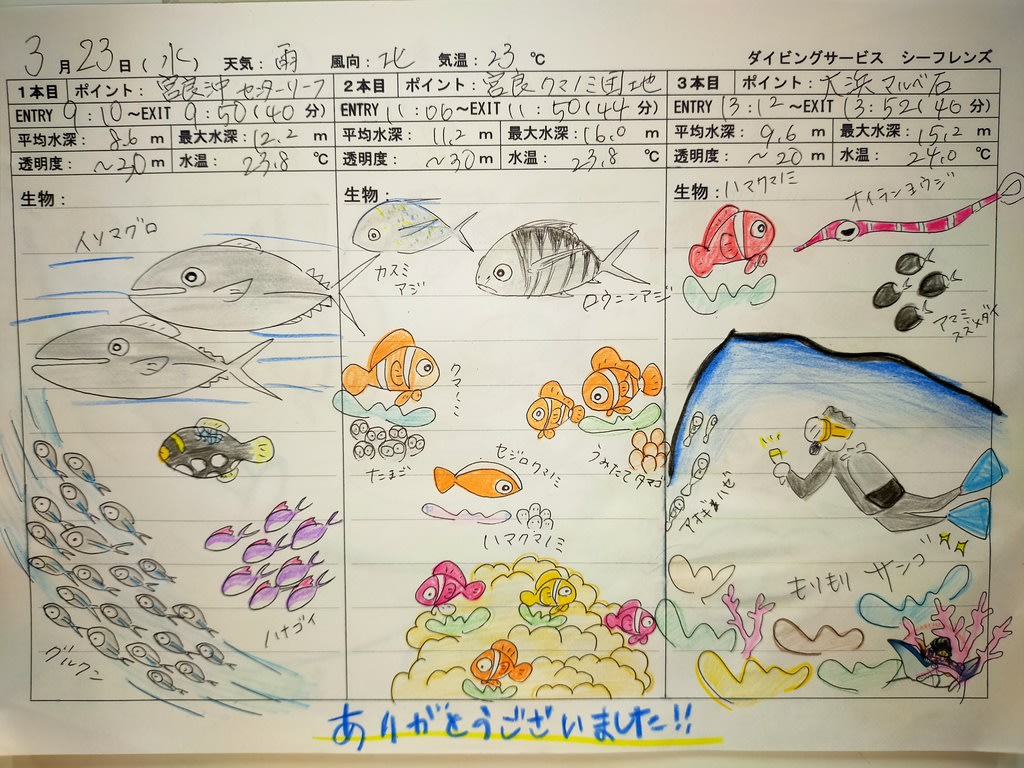 3月23日(水) 天気:雨 風向:北 気温:23℃ ダイビングサービス シーフレンズ
1本目 ポイント:宮良沖センターリーフ
ENTRY 9:10~EXIT 9:50(40分)
平均水深:8.6m 最大水深:12.2m
透明度:~20m 水温:23.8℃
生物:
イソマグロ
グルクン
ハナゴイ
2本目 ポイント:宮良クマノミ団地
ENTRY 11:06~EXIT 11:50(44分)
平均水深:11.2m 最大水深:16.0m
透明度:~30m 水温:23.8℃
生物:
カスミ
アジ
ロウニンアジ
クマノミ
たまご
うみたてタマゴ
セジロクマノミ
ハマクマノミ
3本目 ポイント:大浜マルベ石
ENTRY 13:12~EXIT 13:52(40分)
平均水深:9.6m 最大水深:15.2m
透明度:~20m 水温:24.0℃
生物:ハマクマノミ
オイランヨウジ
アマミ
スズメダイ
もりもり サンゴ
ありがとうございました!!